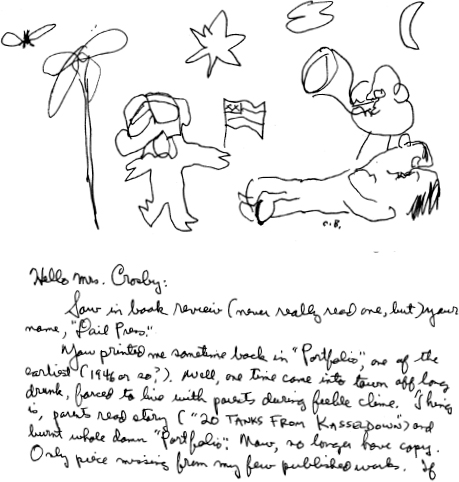 C.B.
Hello Mrs. Crosby:
Saw in book review (never really read one, but) your
name, "Dail Press."
You printed me sometime back in "Portfolio", one of the
earliest (1946 or so?). Well, one time came into town off long
drunk, forced to live with parents during feeble clime. Thing
is, parents read story ("20 TANKS FROM KASSELDOWN") and
burnt whole damn "Portfolio". Now, no longer have copy.
Only piece missing from my few published works. If